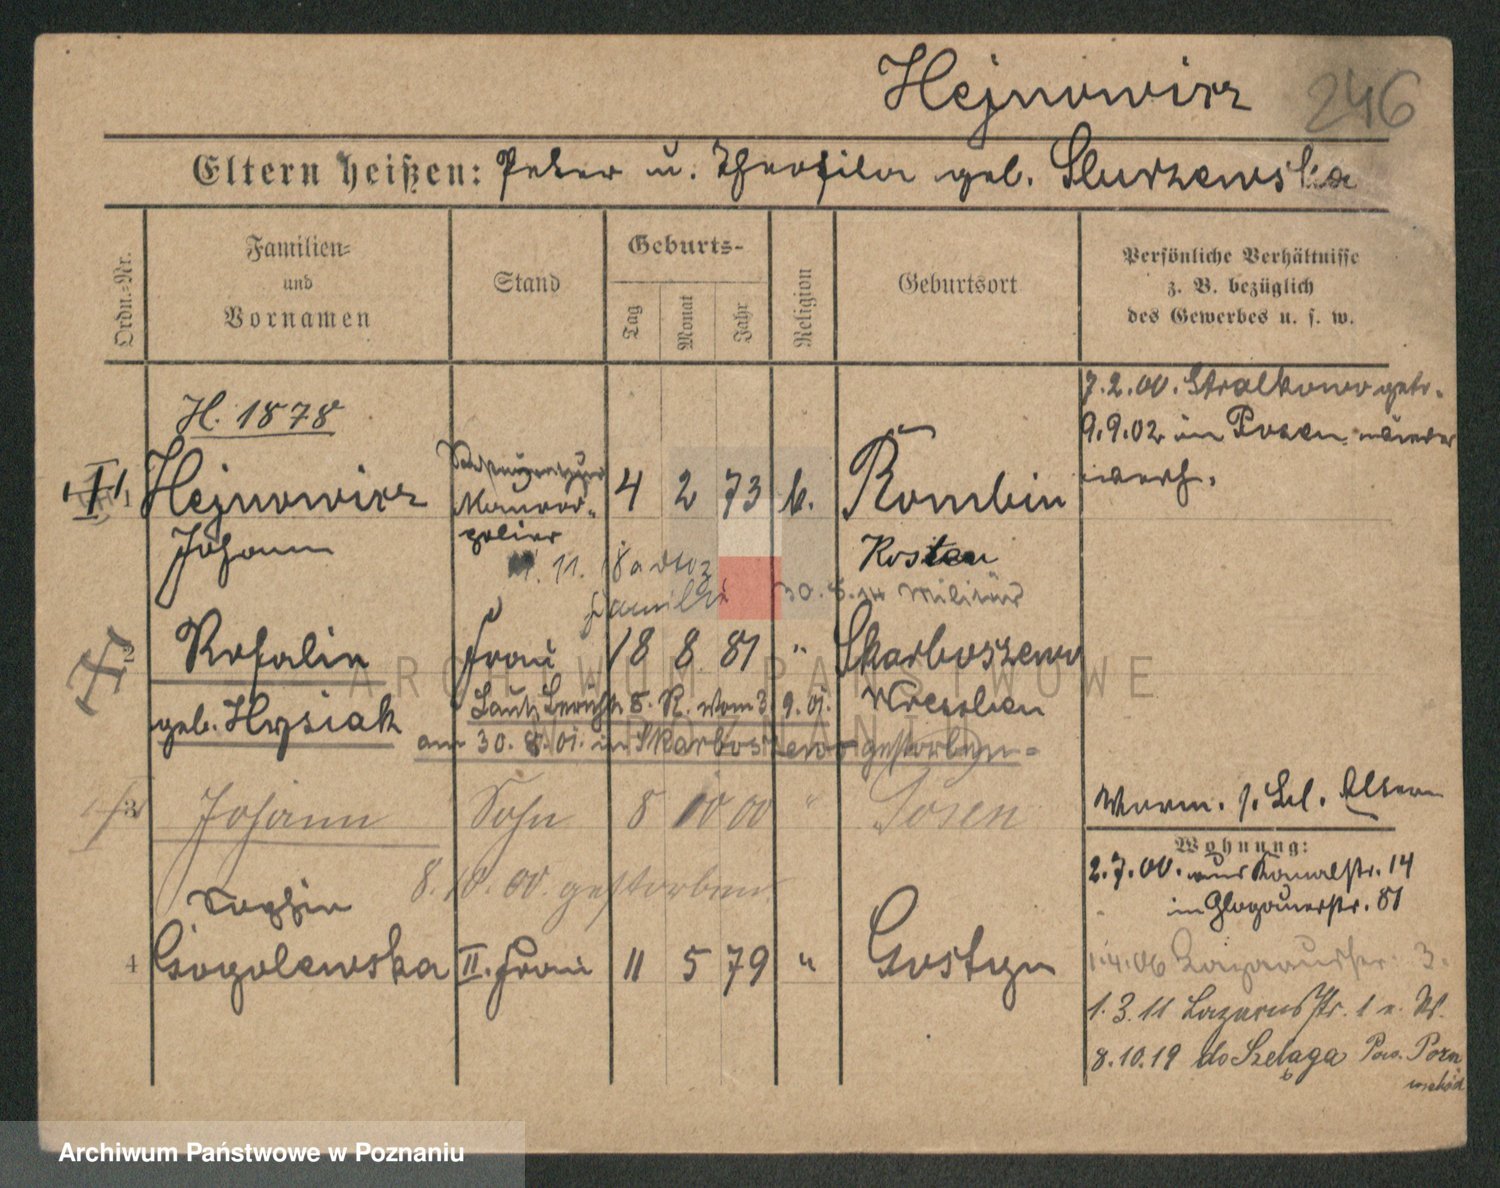 Hejnowicz 246
Eltern heißen: Peter u. Theofila geb. Slurzewska
Ordn.-Nr.
Familien-
und
Vornamen
Stand
Geburts-
Tag
Monat
Jahr
Religion
Geburtsort
Persönliche Verhältnisse
z. B. bezüglich
des Gewerbes u. s. w.
7.2.00. Stralkowo getr.
9.9.02 in Posen
H. 1878
1 Hejnowicz Maurer- 4 2 73 k. Rombin
Johann polier Kosten
1. 11. 18
Familie 30. 8. 14 Militär
2 Rosalie Frau 18 8 81 " Skarboszewo
geb. Hysiak Laut Bericht 8. R. vom 3. 9. 01. Wreschen
am 30. 8. 01. in Skarboszewo gestorben
3 Johann Sohn 8 10 00 " Posen
8. 10. 00. gestorben
Sophie
4 Gogolewska II. Frau 11 5 79 " Gostyn
Verm. s. bes. Akten
Wohnung:
2.7.00. aus Kanalstr. 14
in Glogauerstr. 81
1.4.06 Lazarusstr. 3.
1.3.11 Lazarusstr. 1 n. W.
8.10.19 do Szeląga Pow. Pozn
wschód
ARCHIWUM PAŃSTWOWE
W POZNANIU
Archiwum Państwowe w Poznaniu